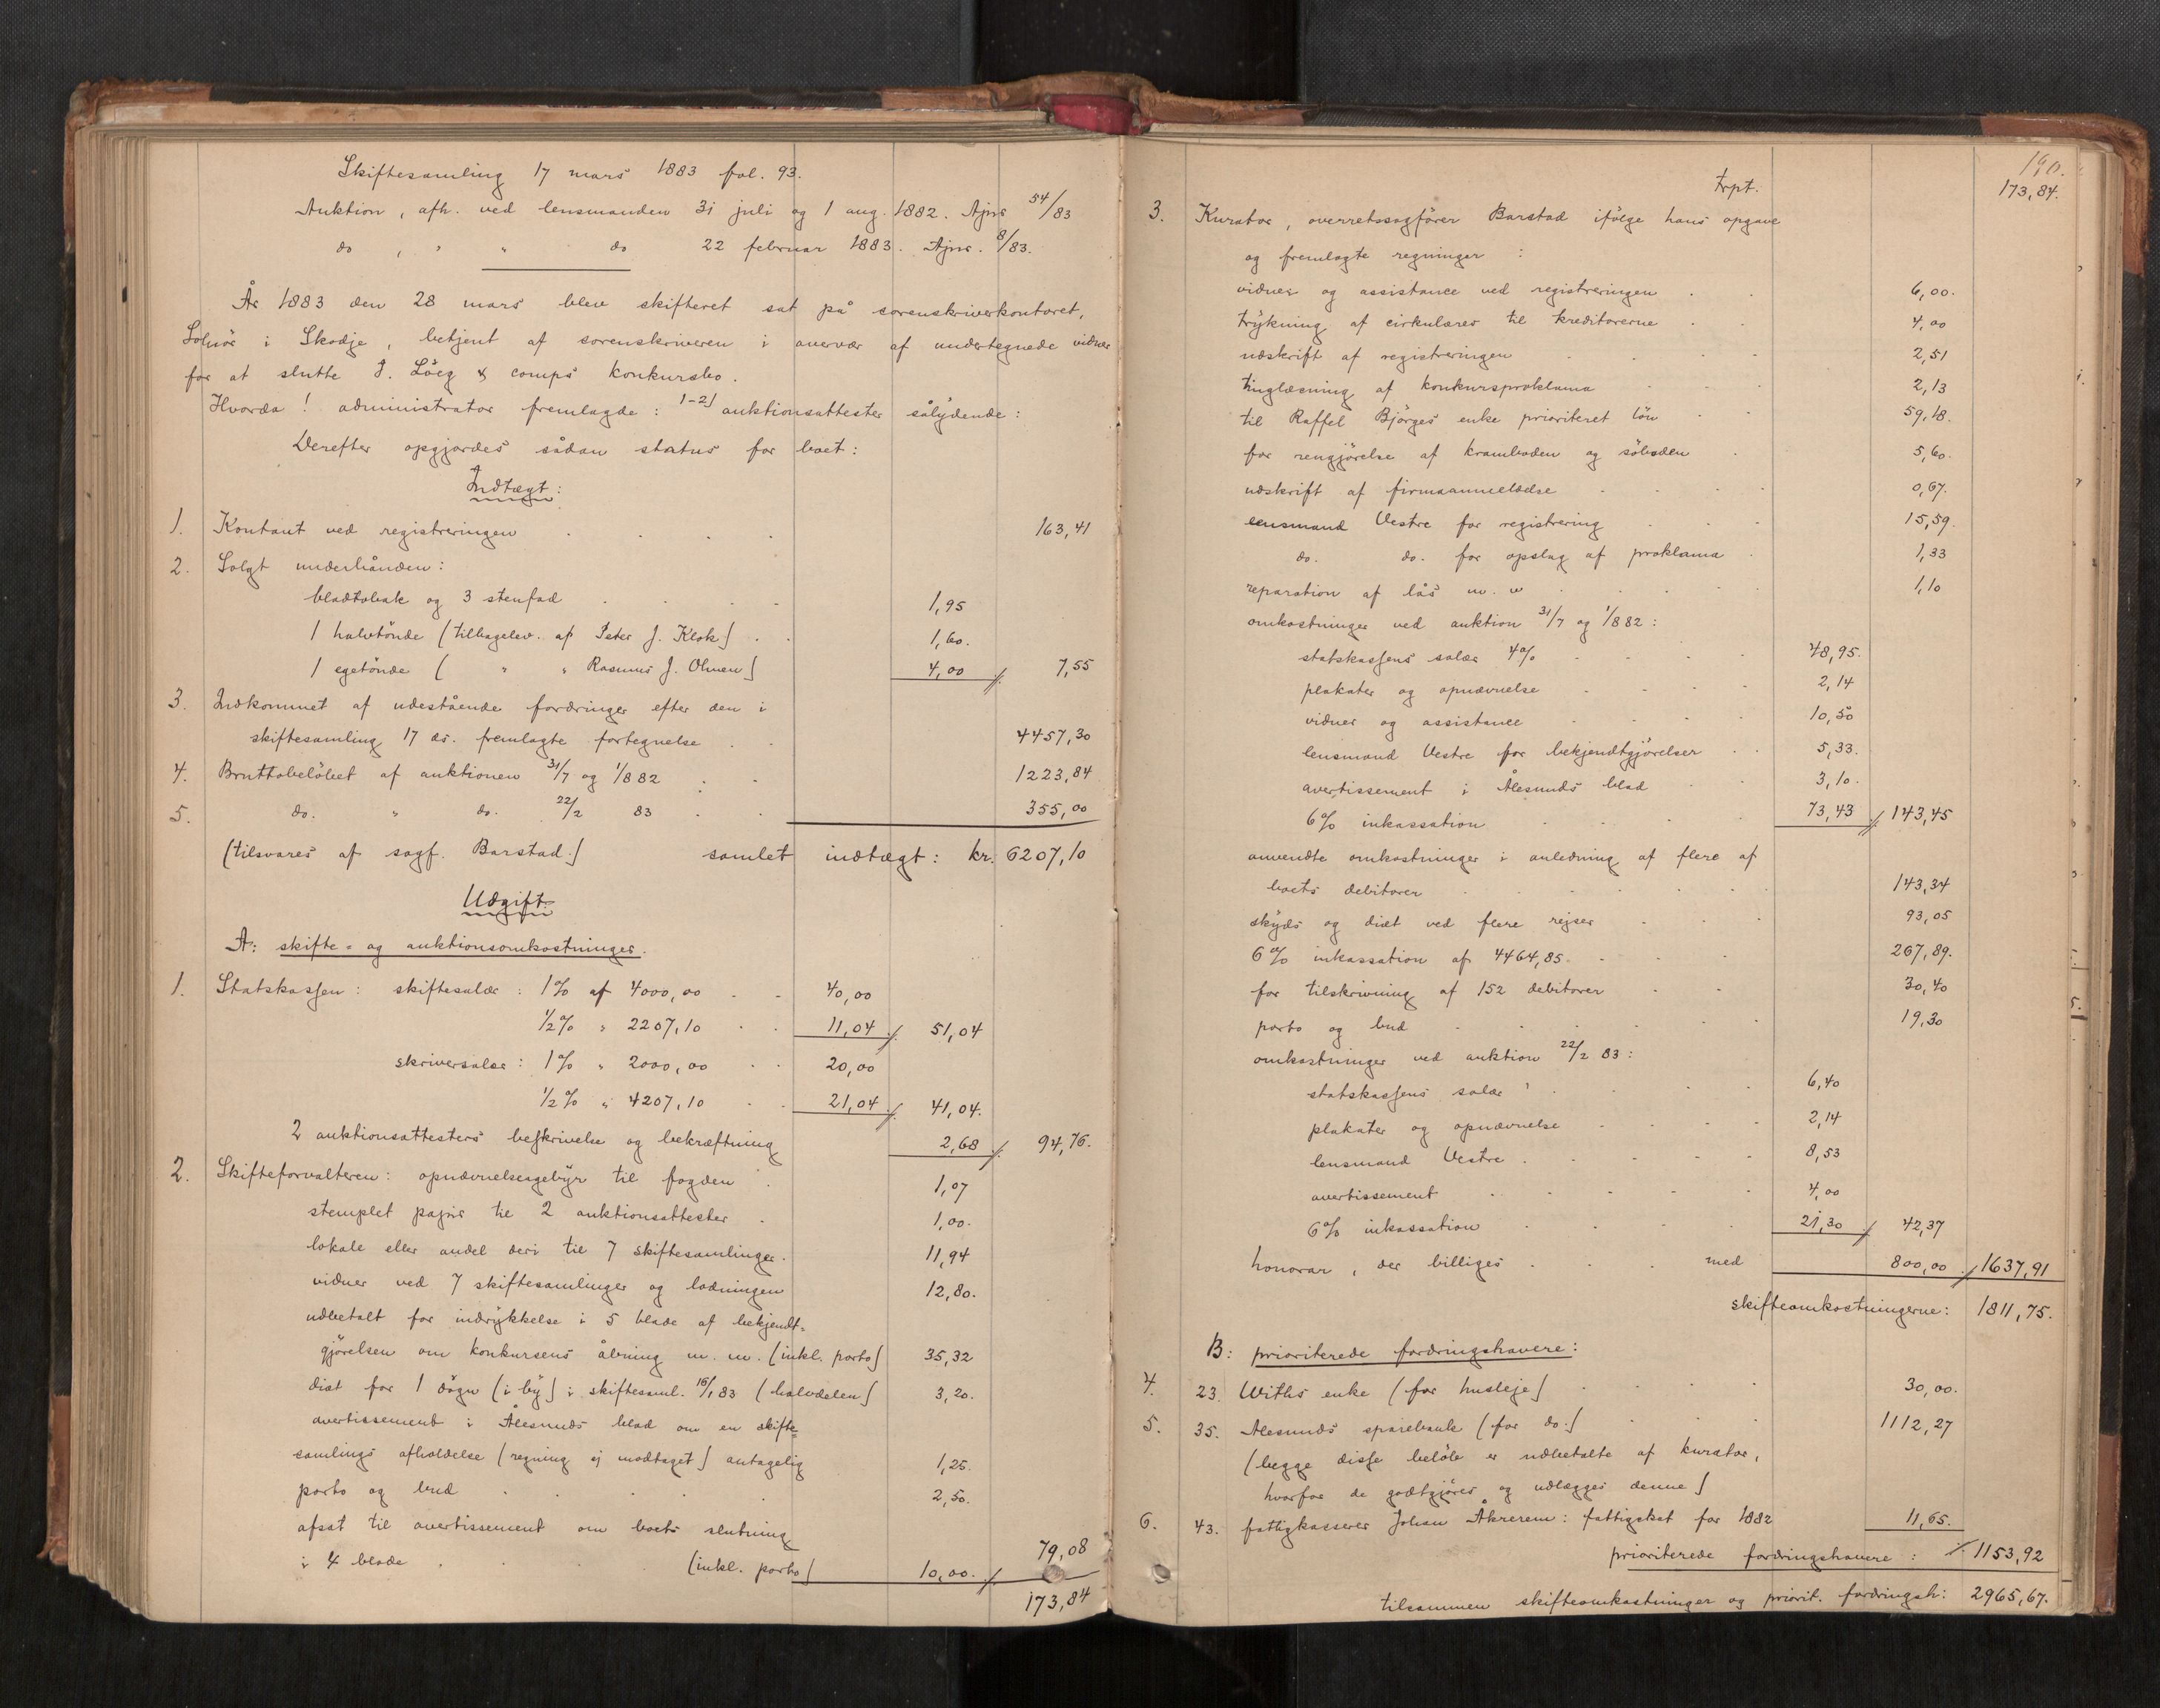 Skiftesamling 17 mars 1883 fol. 93.
Auktion, afh. ved lensmanden 31 juli og 1 aug. 1882. Ajnr 54/83
do , " " do 22 februar 1883. Ajnr. 8/83.
År 1883 den 28 mars blev skifteret sat på sorenskriverkontoret,
Solnör i Skodje, betjent af sorenskriveren i overvær af undertegnede vidner
for at slutte J. Löeg & comps konkursbo.
Hvorda! administrator fremlagde: 1-2) auktionsattester sålydende:
Derefter opgjordes sådan status for boet:
Indtægt:
1. Kontant ved registreringen . . . . 163,41
2. Solgt underhånden:
bladtobak og 3 stenfad . . . . 1,95
1 halvtönde (tilbagelev. af Peter J. Klok) . . 1,60.
1 egetönde ( " " Rasmus J. Olmen) 4,00 ./. 7,55
3. Indkommet af udestående fordringer efter den i
skiftesamling 17 ds. fremlagte fortegnelse . . 4457,30
4. Bruttobelöbet af auktionen 31/7 og 1/8 82 . . 1223,84
5. do. " do. 22/2 83 . . 355,00
(tilsvares af sagf. Barstad.) samlet indtægt: kr. 6207,10
Udgift
A: skifte- og auktionsomkostninger.
1. Statskassen: skiftesalær: 1% af 4000,00 . . 40,00
1/2% " 2207,10 . . 11,04 ./. 51,04
skriversalær: 1% " 2000,00 . . 20,00
1/2% " 4207,10 . . 21,04 ./. 41,04.
2 auktionsattesters beskrivelse og bekræftning 2,68 ./. 94,76.
2. Skifteforvalteren: opnævnelsesgebyr til fogden . 1,07
stemplet papir til 2 auktionsattester . 1,00.
lokale eller andel deri til 7 skiftesamlinger. 11,94
vidner ved 7 skiftesamlinger og lodningen 12,80.
udbetalt for indrykkelse i 5 blade af bekjendt-
gjörelsen om konkursens åbning m. m. (inkl. porto) 35,32
diæt for 1 dögn (i by) i skiftesaml. 16/1 83 (halvdelen) 3,20.
avertissement i Ålesunds blad om en skifte-
samlings afholdelse (regning ej modtaget) antagelig 1,25.
porto og bud . . . . 2,50.
afsat til avertissement om boets slutning
i 4 blade . . . (inkl. porto) 10,00. ./. 79,08
173,84
190.
Trpt. 173,84.
3. Kurator, overretssagförer Barstad ifölge hans opgave
og fremlagte regninger :
vidner og assistance ved registreringen . . 6,00.
trykning af cirkulærer til kreditorerne . . 4,00
udskrift af registreringen . . . . 2,51
tinglæsning af konkursproklama . . . 2,13
til Raffel Bjørges enke prioriteret lön . . 59,18.
for rengjörelse af kramboden og söboden . 5,60.
udskrift af firmaanmeldelse . . . . 0,67.
lensmand Vestre for registrering . . . 15,59.
do. do. for opslag af proklama . 1,33
reparation af lås m. v. . . . 1,10
omkostninger ved auktion 31/7 og 1/8 82:
statskassens salær 4% . . . . 48,95.
plakater og opnævnelse . . . . 2,14
vidner og assistance . . . . 10,50
lensmand Vestre for bekjendtgjörelser . . 5,33.
avertissement i Ålesunds blad . . 3,10.
6% inkassation . . . . 73,43 ./. 143,45
anvendte omkostninger i anledning af flere af
boets debitorer . . . . . . 143,34
skyds og diæt ved flere rejser . . . 93,05
6% inkassation af 4464,85. . . . 267,89.
for tilskrivning af 152 debitorer . . . 30,40
porto og bud . . . . . . 19,30
omkostninger ved auktion 22/2 83:
statskassens salær . . . . 6,40
plakater og opnævnelse . . . . 2,14
lensmand Vestre . . . . . 8,53
avertissement . . . . . 4,00
6% inkassation . . . . 21,30 ./. 42,37
honorar, der billiges . . . . med 800,00 ./. 1637,91
skifteomkostningerne: 1811,75.
B: prioriterede fordringshavere:
4. 23. Withs enke (for husleje) . . . . 30,00.
5. 35. Ålesunds sparebank (for do.) . . . 1112,27
(begge disse belöb er udbetalte af kurator,
hvorfor de godtgjöres og udlægges denne)
6. 43. fattigkasserer Johan Åkrerem: fattigskat for 1882 11,65.
prioriterede fordringshavere: ./. 1153,92
tilsammen skifteomkostninger og priorit. fordringsh: 2965,67.